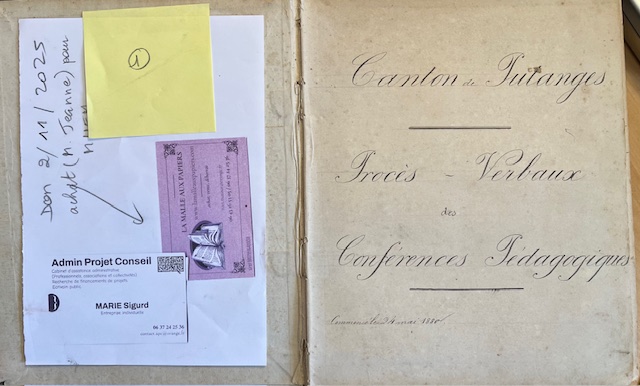 Don 2/11/2025
achat (M. Jeanne) pour
1
LA MALLE AUX PAPIERS
Admin Projet Conseil
Cabinet d'assistance administrative
(Professionnels, associations et collectivités)
Recherche de financements de projets
Écrivain public
MARIE Sigurd
Entreprise individuelle
06 37 24 25 36
Canton de Putanges
Procès - Verbaux
des
Conférences Pédagogiques
1880